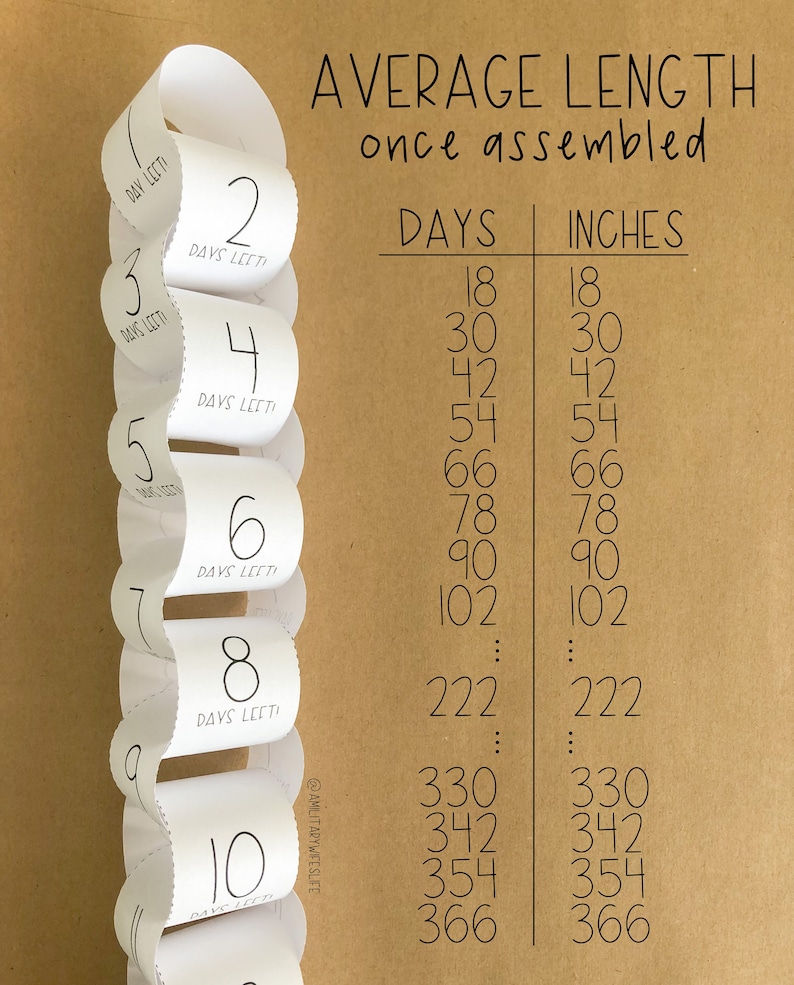 AVERAGE LENGTH
once assembled
DAYS INCHES
18 18
30 30
42 42
54 54
66 66
78 78
90 90
102 102
⋮ ⋮
222 222
⋮ ⋮
330 330
342 342
354 354
366 366
1
DAY LEFT!
2
DAYS LEFT!
3
DAYS LEFT!
4
DAYS LEFT!
5
DAYS LEFT!
6
DAYS LEFT!
7
8
DAYS LEFT!
9
10
DAYS LEFT!
11
@AMILITARYWIFESLIFE